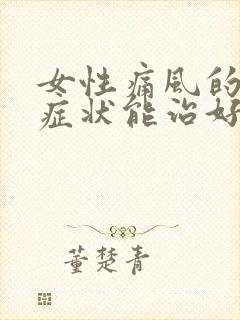 女性痛风的
症状能治好
董楚青